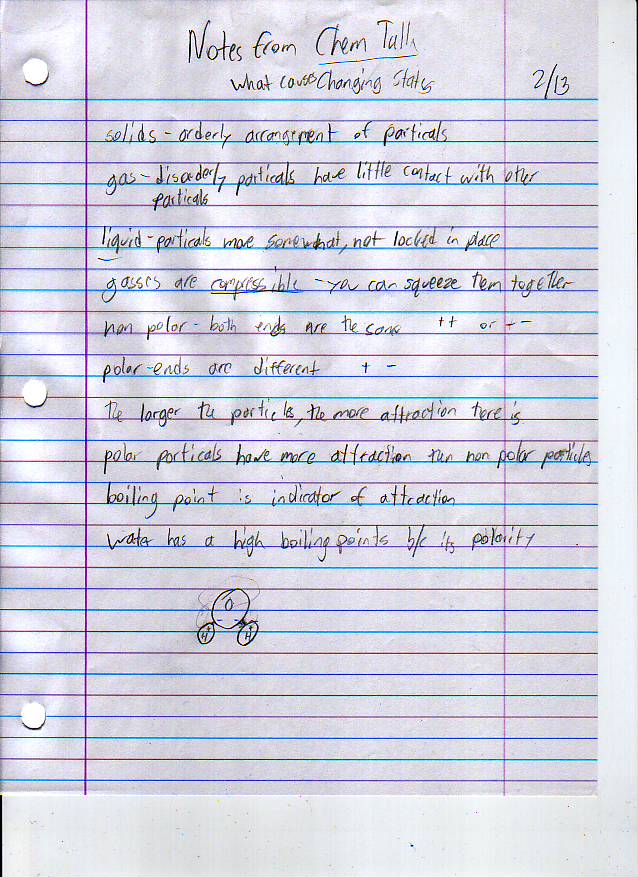 Notes from Chem Talk
What causes Changing States
2/13
solids - orderly arrangement of particals
gas - disorderly particals have little contact with other
particals
liquid - particals move somewhat, not locked in place
gasses are compressible - you can squeeze them together
non polar - both ends are the same ++ or --
polar - ends are different + -
the larger the particls, the more attraction there is
polar particals have more attraction than non polar particles
boiling point is indicator of attraction
water has a high boiling points b/c its polarity
O
H+ H+